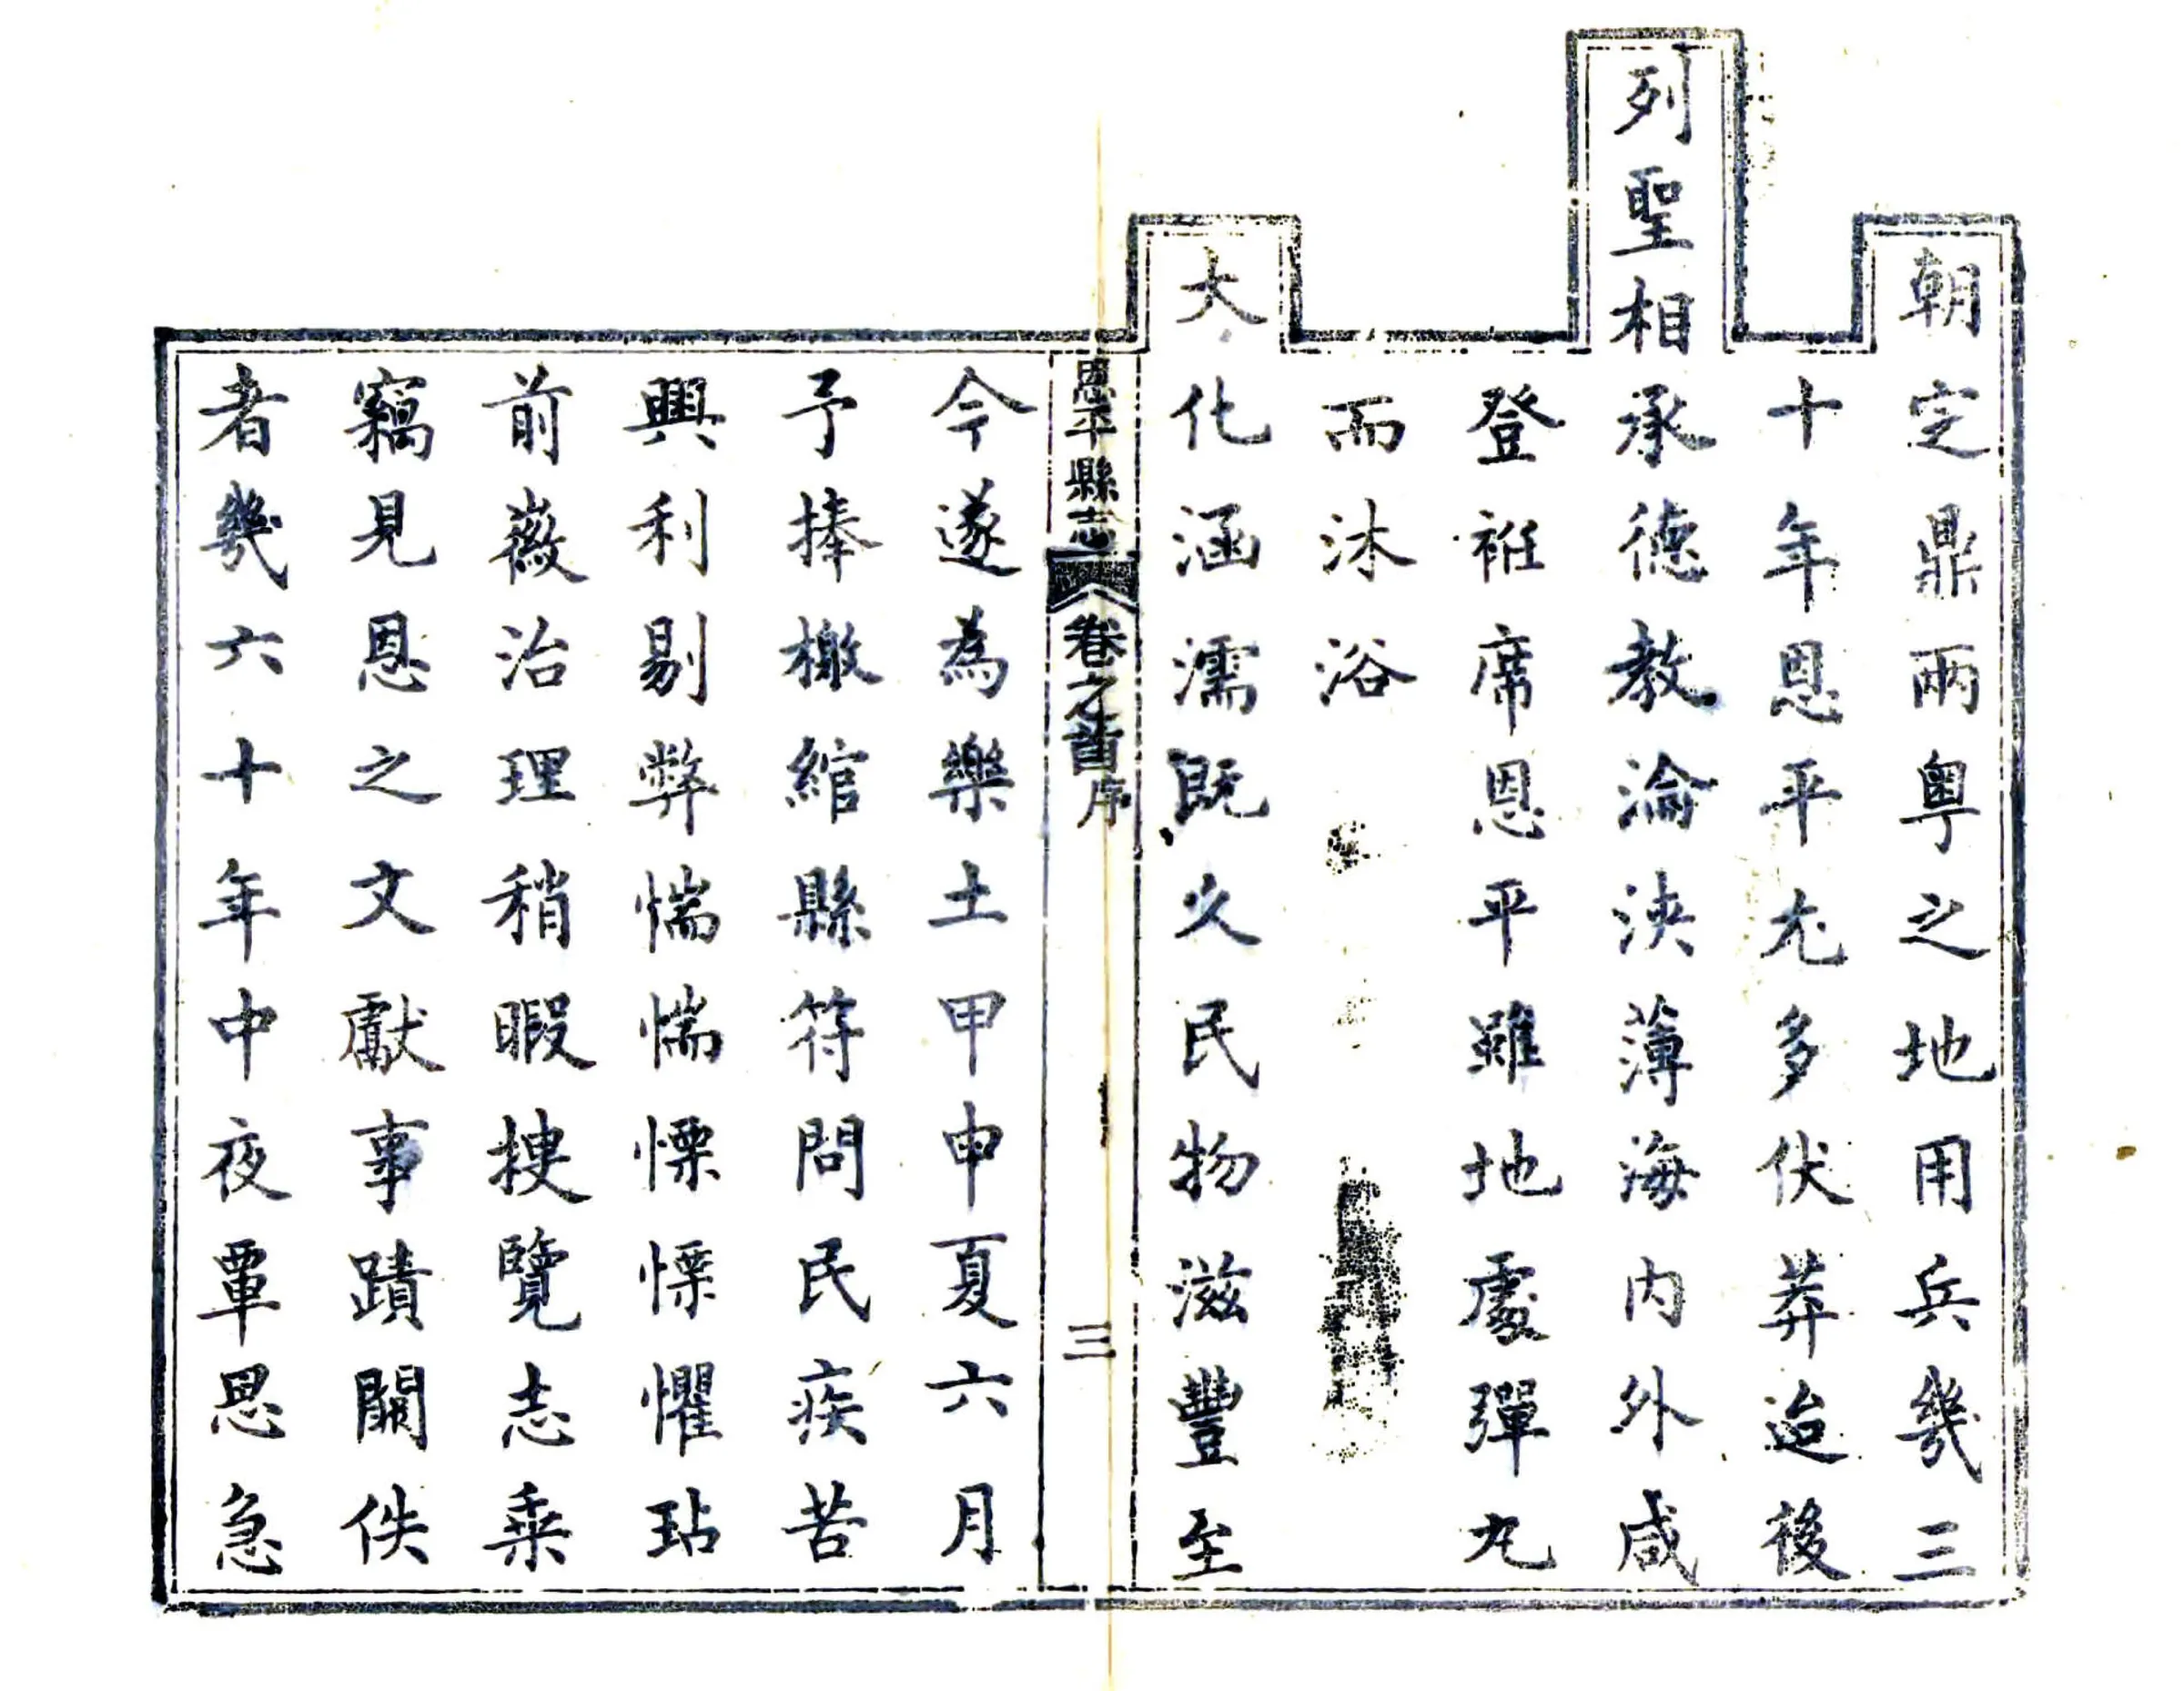 朝定鼎兩粵之地用兵幾三
十年恩平尤多伏莽迨後
列聖相承德教淪浹薄海內外咸
登袵席恩平雖地處彈丸
而沐浴
大化涵濡既久民物滋豐至
恩平縣志 卷之首 序 三
今遂為樂土甲申夏六月
予捧檄綰縣符問民疾苦
興利剔弊惴惴慄慄懼玷
前薇治理稍暇搜覽志乘
竊見恩之文獻事蹟闕佚
者幾六十年中夜覃思急